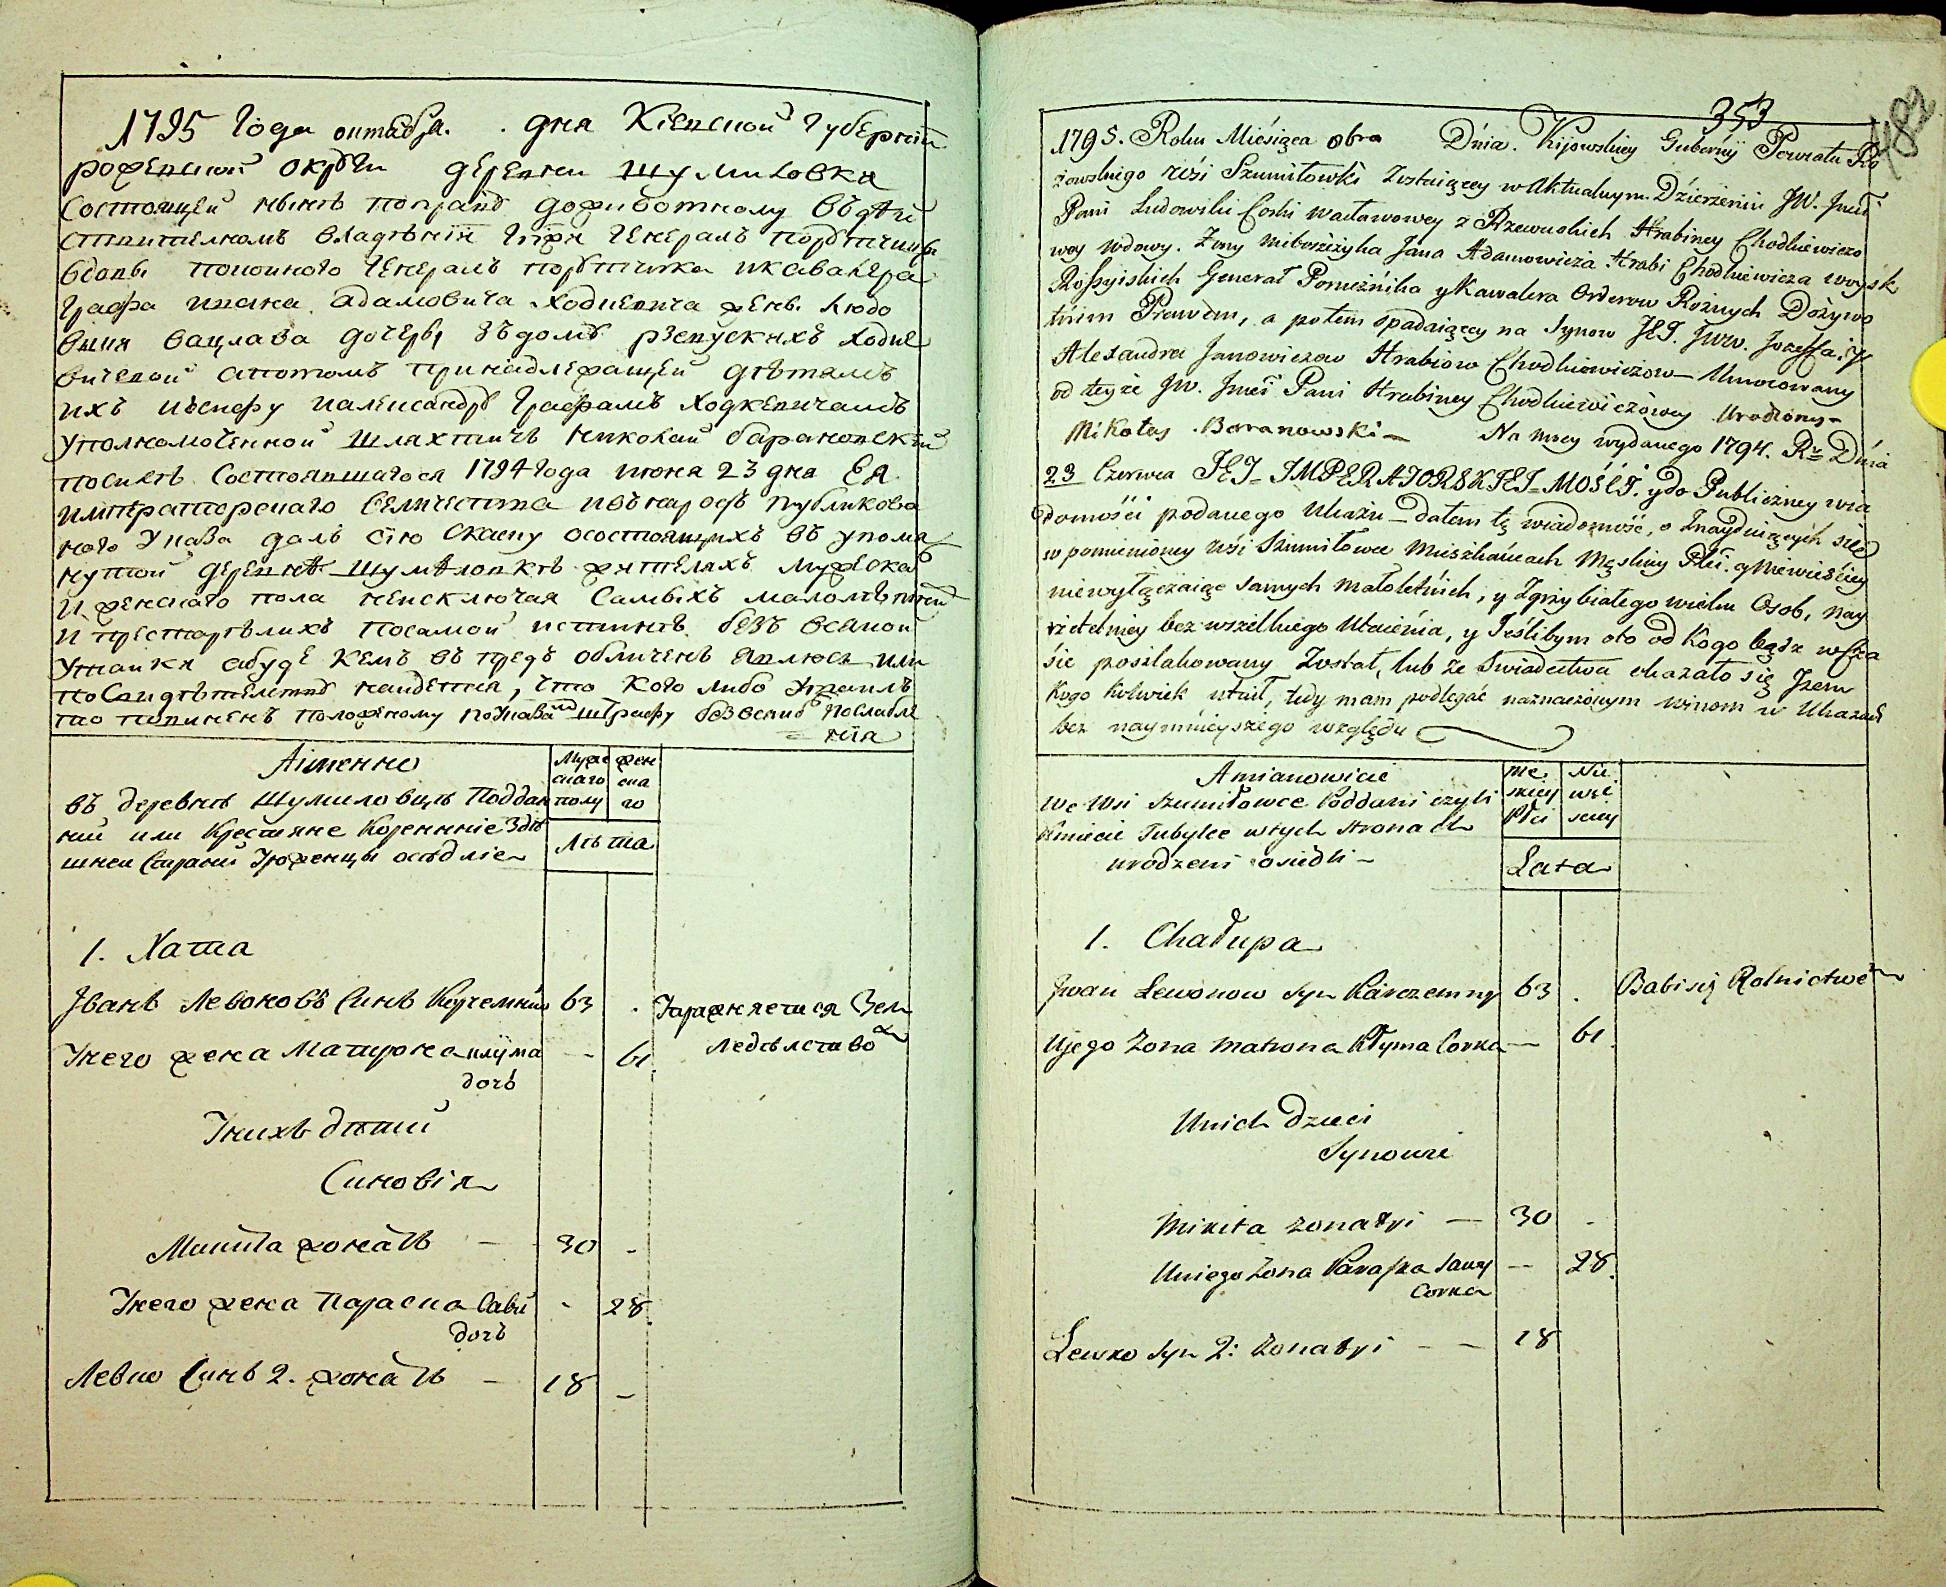 1795 Года октабря. дня Кіевской Губерніи
рожевской округи деревни Шумиловки
состоящей нынѣ поправу доживотному въ дѣй
ствителномъ владѣніи Гпжи Генералъ порутчицы
вдовы покойного Генералъ порутчика икавалера
Графа ивана адамовича Ходкевича жены Людо
вики вацлава дочеры зъдому ржевускихъ ходке
вичевой апотомъ принадлежащей дѣтямъ
ихъ иосифу иалександру Графамъ Ходкевичамъ
уполномоченной шляхтичъ николай барановскій
посилѣ состоявшагося 1794 года июня 23 дня ЕЯ
императорскаго величества ивънародъ публикова
ного указа далъ сію скаску осостоящихъ въ упомя
нутой деревнѣ Шумѣловкѣ жителяхъ мужеска
и женскаго пола неисключая самыхъ малолѣтнихъ
и престарѣлихъ посамой истиннѣ безъ всякой
утайки абуде кемъ въ предъ обличенъ явлюсь или
посвидѣтелству найдется, что кого либо утаилъ
то повиненъ положеному поуказамъ штрафу безъвсякого послабле
нія
Аіменно
въ деревнѣ Шумиловцѣ Поддан
ний или Крестяне Кореннніе Здѣ
шней Старони Урожденцы осѣдліе
Муже
скаго
полу
жен
ска
го
Лѣта
1. Хата
Іванъ Левоновъ Синъ Корчемній 63 .
Упражняется Зем
ледѣлство
Унего жена Матрона клима – 61.
дочь
Унихъ дѣтий
Синовія
Микита жонатъ – – 30 –
Унего жена Параска Сави - 28.
дочъ
Левко Синъ 2. жонатъ – 18 –
353
482
1795. Roku Miésiąca 8bra Dnia. Kijowskiey Gubernij Powiatu Ro
żowskiego wśi Szumiłowki Zostaiącey w Aktualnym Dzierżeniu JW. Jmći
Pani Ludowiki Corki Wacławowey z Rzewuskich Hrabiney Chodkiewiczo
wey Wdowy. Żony nieboszczyka Jana Adamowicza Hrabi Chodkiewicza woysk
Rossyiskich Generał Poruczńika y Kawalera Orderow Rożnych Dożywo
tńim Prawem, a potem spadaiącey na Synow JEJ. JWW. Jozeffa. y
Alexandra Janowiczow Hrabiow Chodkiewiczow – Umocowany
od teyże JW. Jmći Pani Hrabiney Chodkiewiczowey Urodzony –
Mikołay Baranowski – Na mocy wydanego 1794. Ru Dnia
23 Czerwca JEJ–IMPERATORSKIEJ–MOŚĆI. y do Publiczney wia
domośći podanego Ukazu – dałem tę wiadomość, o Znayduiących się
w pomienioney wśi Szumiłowce Mieszkańcach Męskiey Płći. y Niewieśćiey
niewyłączaiąc samych Małoletńich, y Zgrzybiałego wieku Osob, nay
rzetelniey bez wszelkiego Utaienia, y Jeślibym oto od kogo bądź w cza
śie poszlakowany Został, lub ze Swiadectwa okazało się Jżem
Kogo Kolwiek utaił, tedy mam podlegać naznaczonym winom w Ukazach
bez naymnieyszego względu
Amianowicie
We Wsi Szumiłowce Poddani czyli
Kmiecie Tubylce wtych stronach
urodzeni osiedli –
Me
skiey
Płci
Nie
wie
sciey
Lata
1. Chałupa
Jwan Lewonow Syn Karczemny 63 . Babi się Rolnictwem
Ujego Zona Matrona Kłyma Corka – 61.
Unich Dzieci
Synowie
Mikita zonatyi – 30 -
Uniego Zona Paraska Sawy – 28.
Corka
Lewko Syn 2: Zonatyi – – 18